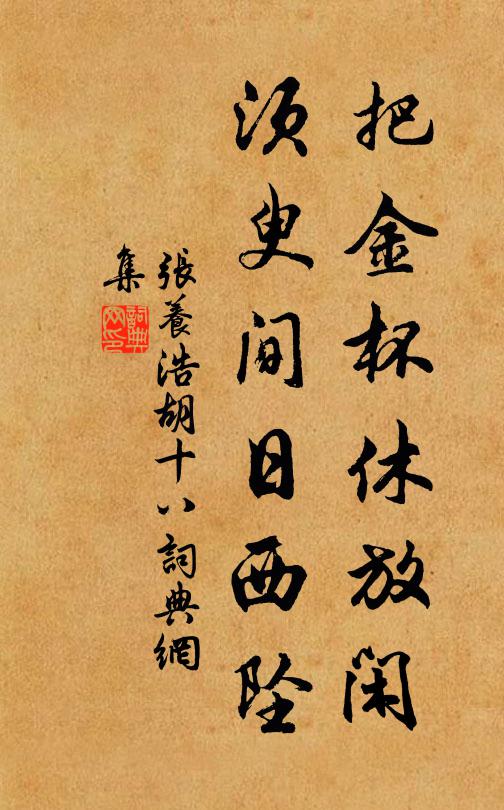 把金杯休放閑
須臾间日西墜
張養浩胡十八詞典網
集
詞典網印